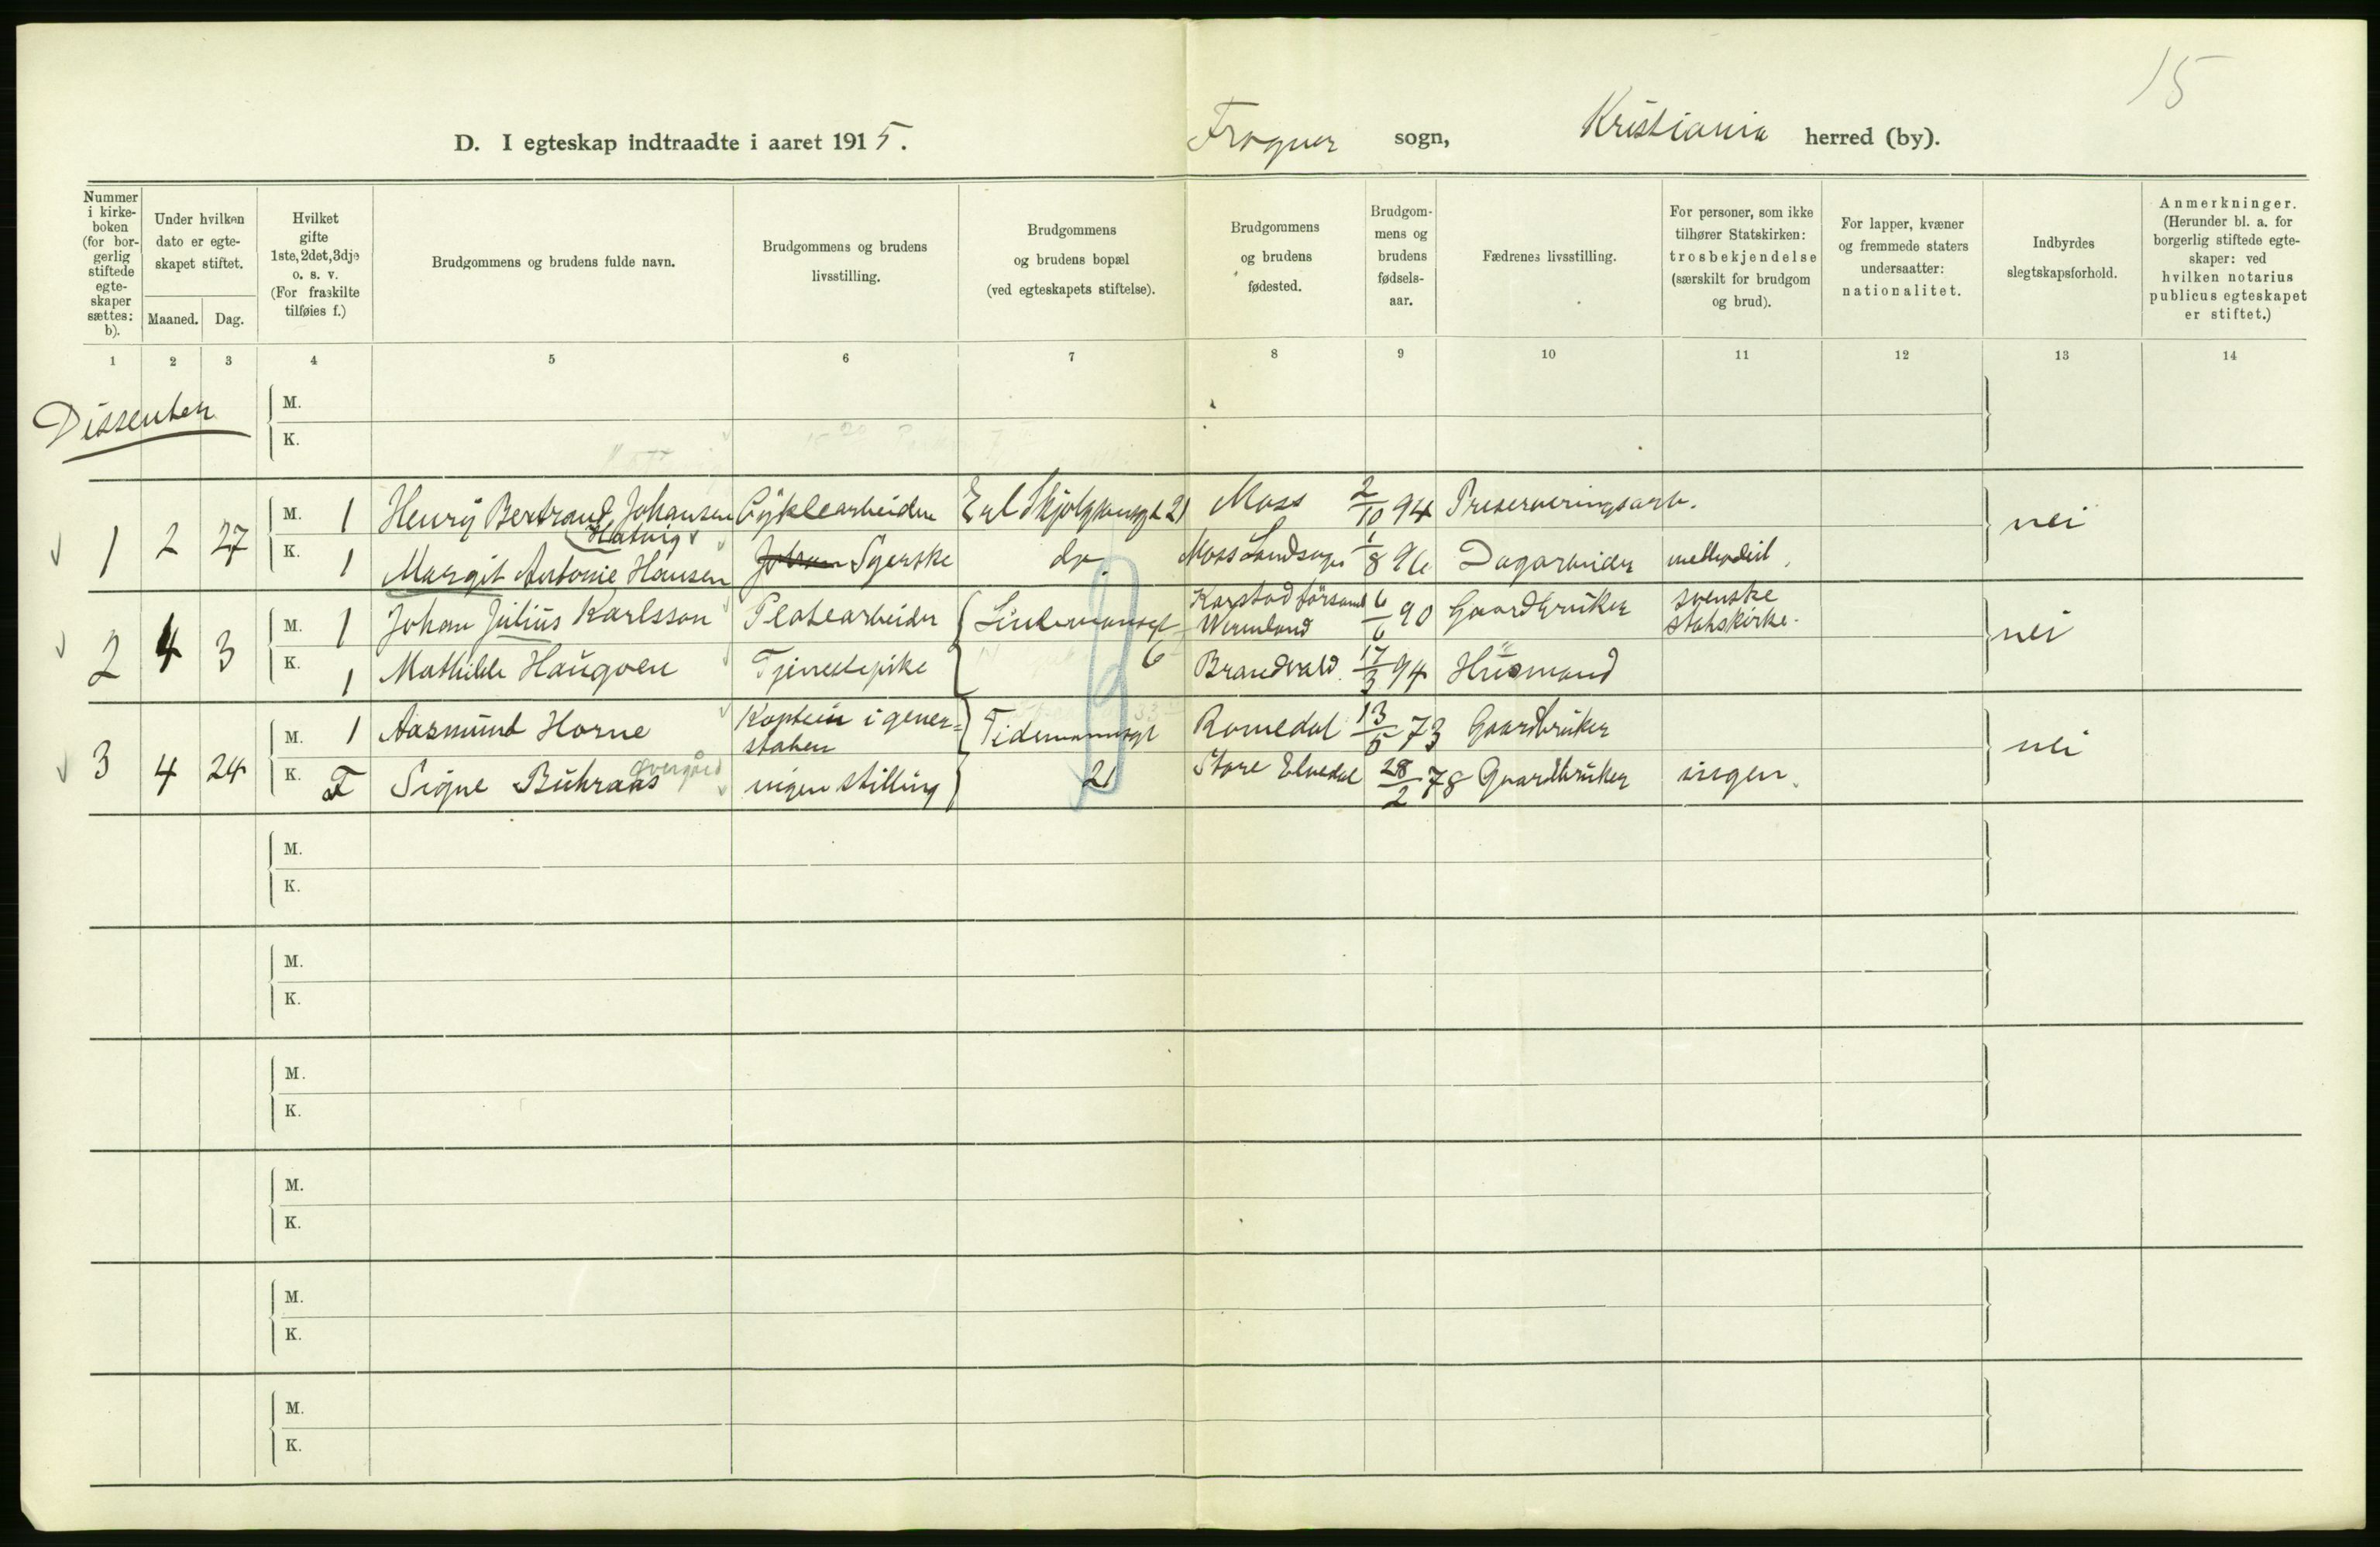 15
D. I egteskap indtraadte i aaret 1915. Frogner sogn, Kristiania herred (by).
Nummer i kirke- boken (for bor- gerlig stiftede egte- skaper sættes: b).
Under hvilken dato er egte- skapet stiftet.
Maaned. Dag.
Hvilket gifte 1ste, 2det, 3dje o. s. v. (For fraskilte tilføies f.)
Brudgommens og brudens fulde navn.
Brudgommens og brudens livsstilling.
Brudgommens og brudens bopæl (ved egteskapets stiftelse).
Brudgommens og brudens fødested.
Brudgom- mens og brudens fødsels- aar.
Fædrenes livsstilling.
For personer, som ikke tilhører Statskirken: trosbekjendelse (særskilt for brudgom og brud).
For lapper, kvæner og fremmede staters undersaatter: nationalitet.
Indbyrdes slegtskapsforhold.
Anmerkninger. (Herunder bl. a. for borgerlig stiftede egte- skaper: ved hvilken notarius publicus egteskapet er stiftet.)
1 2 3 4 5 6 7 8 9 10 11 12 13 14
Dissenter
M.
K.
1 2 27 M. 1 Henry Bertrand Johansen Cyklearbeider Erl Skjalgsønsgt 21 Moss 2/10 94 Preserveringsarb. nei
Hatvig
K. 1 Margit Antonie Hansen Syerske do. Moss Landsogn 1/8 96 Dagarbeider methodist.
2 4 3 M. 1 Johan Julius Karlsson Platearbeider Karstad församl Wermland 6/6 90 Gaardbruker svenske statskirke. nei
K. 1 Mathilde Haugoen Tjenestepike 6 Brandvald. 17/3 94 Husmand
3 4 24 M. 1 Aasmund Horne Kaptein i gener= staben Tidemannsgt Romedal 13/5 73 Gaardbruker nei
Øvergård
K. F Signe Buhraas ingen stilling 21 Store Elvedal 28/2 78 Gaardbruker ingen.
M.
K.
M.
K.
M.
K.
M.
K.
M.
K.
M.
K.